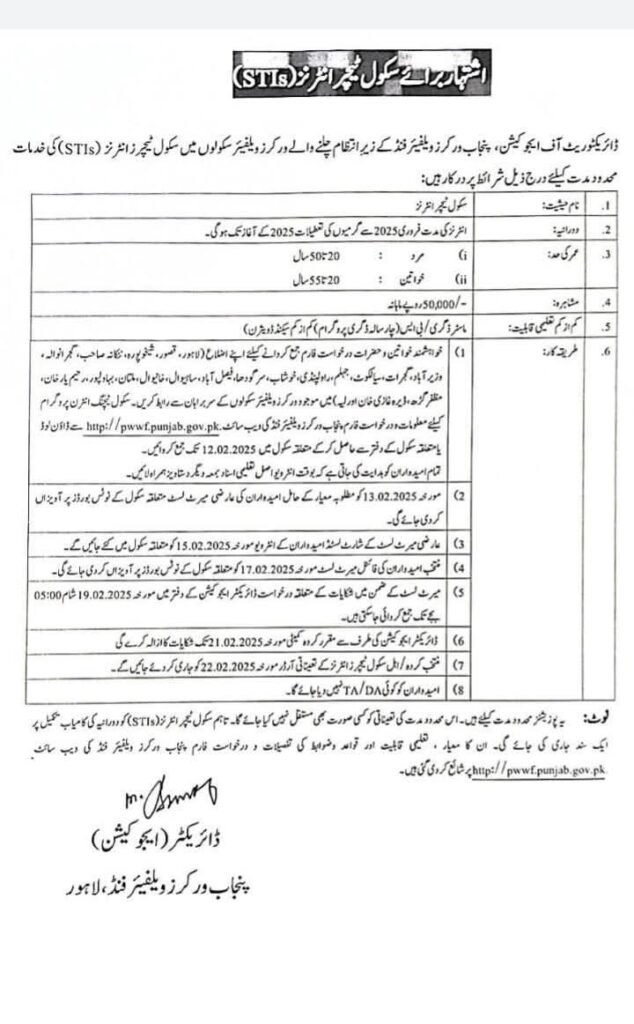 اشتہار برائے سکول ٹیچر انٹرنز (STIs)
ڈائریکٹوریٹ آف ایجوکیشن، پنجاب ورکرز ویلفیئر فنڈ کے زیر انتظام چلنے والے ورکرز ویلفیئر سکولوں میں سکول ٹیچرز انٹرنز (STIs) کی خدمات
محدود مدت کیلئے درج ذیل شرائط پر درکار ہیں:
1. نام حیثیت: سکول ٹیچر انٹرنز
2. دورانیہ: انٹرنز کی مدت فروری 2025 سے گرمیوں کی تعطیلات 2025 کے آغاز تک ہو گی۔
3. عمر کی حد: (i مرد : 20 تا 50 سال
(ii خواتین : 20 تا 55 سال
4. مشاہرہ: -/50,000 روپے ماہانہ
5. کم از کم تعلیمی قابلیت: ماسٹر ڈگری/بی ایس (چار سالہ ڈگری پروگرام) کم از کم سیکنڈ ڈویژن)
6. طریقہ کار: (1 خواہشمند خواتین و حضرات درخواست فارم جمع کروانے کیلئے اپنے اضلاع (لاہور، قصور، شیخوپورہ، ننکانہ صاحب، گجرانوالہ،
وزیر آباد، گجرات، سیالکوٹ، جہلم، راولپنڈی، خوشاب، سرگودھا، فیصل آباد، ساہیوال، خانیوال، ملتان، بہاولپور، رحیم یار خان،
مظفر گڑھ، ڈیرہ غازی خان اور لیہ) میں موجود ورکرز ویلفیئر سکولوں کے سربراہان سے رابطہ کریں۔ سکول ٹیچنگ انٹرن پروگرام
کیلئے معلومات و درخواست فارم پنجاب ورکرز ویلفیئر فنڈ کی ویب سائٹ http://pwwf.punjab.gov.pk. سے ڈاؤن لوڈ
یا متعلقہ سکول کے دفتر سے حاصل کر کے متعلقہ سکول میں 12.02.2025 تک جمع کروائیں۔
تمام امیدواران کو ہدایت کی جاتی ہے کہ بوقت انٹرویو اصل تعلیمی اسناد بمعہ دیگر دستاویز ہمراہ لائیں۔
(2 مورخہ 13.02.2025 کو مطلوبہ معیار کے حامل امیدواران کی عارضی میرٹ لسٹ متعلقہ سکول کے نوٹس بورڈز پر آویزاں
کر دی جائے گی۔
(3 عارضی میرٹ لسٹ کے شارٹ لسٹڈ امیدواران کے انٹرویو مورخہ 15.02.2025 کو متعلقہ سکول میں کئے جائیں گے۔
(4 منتخب امیدواران کی فائنل میرٹ لسٹ مورخہ 17.02.2025 کو متعلقہ سکول کے نوٹس بورڈز پر آویزاں کر دی جائے گی۔
(5 میرٹ لسٹ کے ضمن میں شکایات کے متعلقہ درخواست ڈائریکٹر ایجوکیشن کے دفتر میں مورخہ 19.02.2025 شام 05:00
بجے تک جمع کروائی جا سکتی ہیں۔
(6 ڈائریکٹر ایجوکیشن کی طرف سے مقرر کردہ کمیٹی مورخہ 21.02.2025 تک شکایات کا ازالہ کرے گی
(7 منتخب کردہ/اہل سکول ٹیچرز انٹرنز کے تعیناتی آرڈر مورخہ 22.02.2025 کو جاری کر دئے جائیں گے۔
(8 امیدواران کو کوئی TA/DA نہیں دیا جائے گا۔
نوٹ: یہ پوزیشنز محدود مدت کیلئے ہیں۔ اس محدود مدت کی تعیناتی کو کسی صورت بھی مستقل نہیں کیا جائے گا۔ تاہم سکول ٹیچر انٹرنز (STIs) کو دورانیہ کی کامیاب تکمیل پر
ایک سند جاری کی جائے گی۔ ان کا معیار، تعلیمی قابلیت اور قواعد وضوابط کی تفصیلات و درخواست فارم پنجاب ورکرز ویلفیئر فنڈ کی ویب سائٹ
http://pwwf.punjab.gov.pk پر شائع کر دی گئی ہیں۔
ڈائریکٹر (ایجوکیشن)
پنجاب ورکرز ویلفیئر فنڈ، لاہور